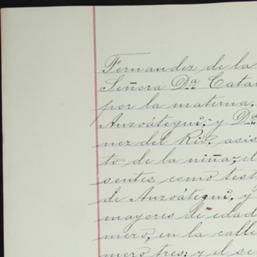 Fernandez de la
Señora Da Cata
por la materna,
Anzoátegui; y D
ner del Rio, asis
to de la niña; el
sentes, como test
de Anzoátegui, y
mayores de edad
mero, en la calle
mero tres; y el se